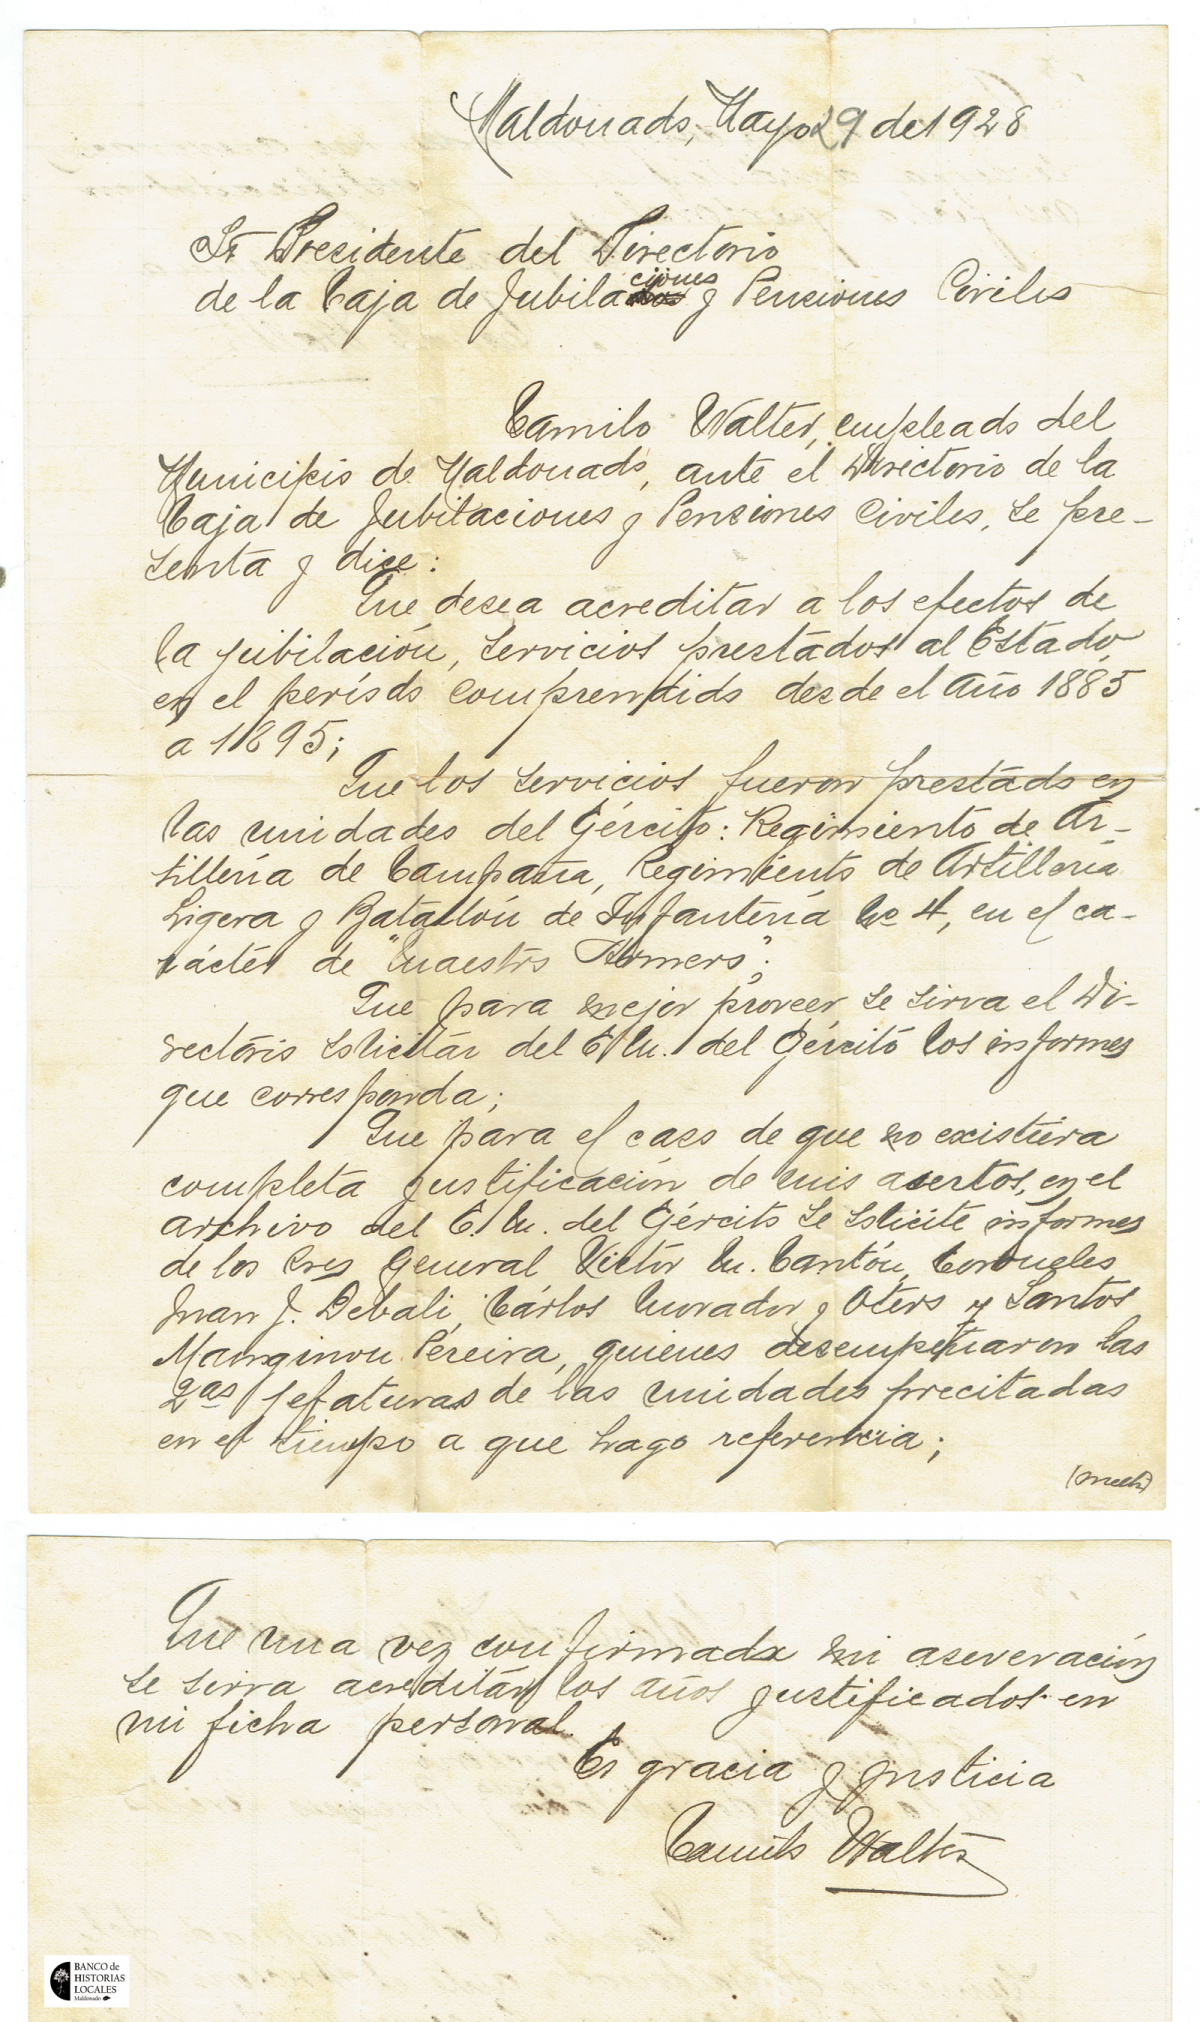 Maldonado, Mayo 29 de 1928
Sr Presidente del Directorio
de la Caja de Jubilaciones y Pensiones Civiles
Camilo Walter, empleado del
Municipio de Maldonado, ante el Directorio de la
Caja de Jubilaciones y Pensiones Civiles, se pre-
senta y dice:
Que desea acreditar a los efectos de
la jubilación, servicios prestados al Estado,
en el período comprendido desde el año 1885
a 1895;
Que los servicios fueron prestado en
las unidades del Ejército: Regimiento de Ar-
tillería de Campaña, Regimiento de Artillería
Ligera y Batallón de Infantería No 4, en el ca-
rácter de "Maestro Armero";
Que para mejor proveer se sirva el Di-
rectorio solicitar del E. M. del Ejército los informes
que corresponda;
Que para el caso de que no existiera
completa justificación de mis asertos, en el
archivo del E. M. del Ejército se solicite informes
de los Sres General Victor M. Cantón, Coroneles
Juan J. Debali, Cárlos Morador y Otero y Santos
Manginou Pereira, quienes desempeñaron las
2as jefaturas de las unidades precitadas
en el tiempo a que hago referencia;
Que una vez confirmada mi aseveración
se sirva acreditár los años justificados en
mi ficha personal.
Es gracia y justicia
Camilo Walter
BANCO de
HISTORIAS
LOCALES
Maldonado